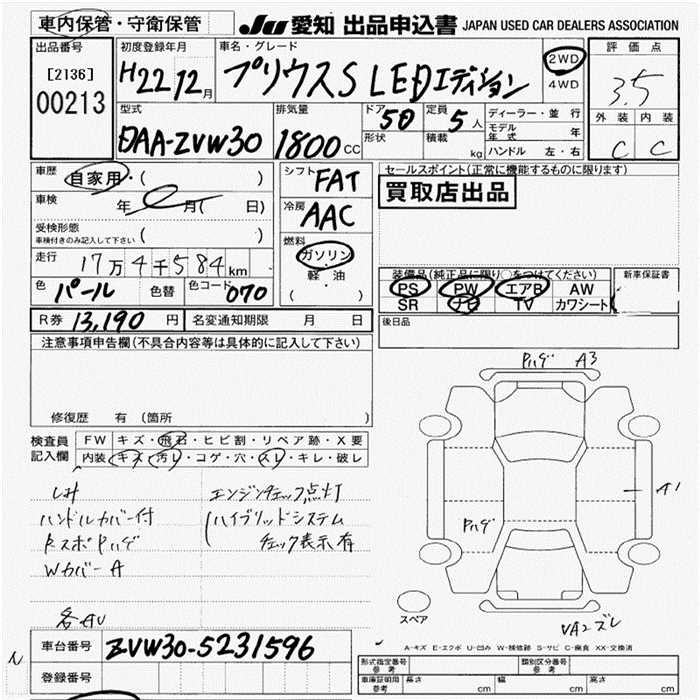 車内保管・守衛保管
JU 愛知 出品申込書 JAPAN USED CAR DEALERS ASSOCIATION
出品番号
[2136]
00213
初度登録年月
H22 12月
車名・グレード
プリウスS LEDエディション
2WD
4WD
評価点
3.5
外装 内装
C C
型式
DAA-ZVW30
排気量
1800CC
ドア 5D
形状
定員 5人
積載 kg
ディーラー・並行
モデル年式 年
ハンドル 左・右
車歴 自家用・( )
車検 年 月( 日)
受検形態
車検付きのみ記入して下さい ( )
走行 17万4千584km
色 パール 色替 色コード 070
シフト FAT
冷房 AAC
燃料
ガソリン
軽・油
( )
セールスポイント(正常に機能するものに限ります)
買取店出品
装備品(純正品に限り○をつけてください) 新車保証書
PS PW エアB AW
SR ナビ TV カワシート
後日品
R券 13,190円 名変通知期限 月 日
注意事項申告欄(不具合内容等は具体的に記入して下さい)
修復歴 有(箇所
検査員記入欄
FW キズ・飛石・ヒビ割・リペア跡・X要
内装 キズ・汚レ・コゲ・穴・スレ・キレ・破レ
ハンドルカバー付
RスポPハゲ
WカバーA
エンジンチェック点灯
(ハイブリッドシステム
チェック表示有
Pハゲ A3
Pハゲ
A1
スペア
A-キズ E-エクボ U-凹み W-補修跡 S-サビ C-腐食 XX-交換済
車台番号 ZVW30-5231596
登録番号
形式指定番号 参考
類別区分番号 参考
車庫証明用 参考 長さ cm 幅 cm 高さ cm